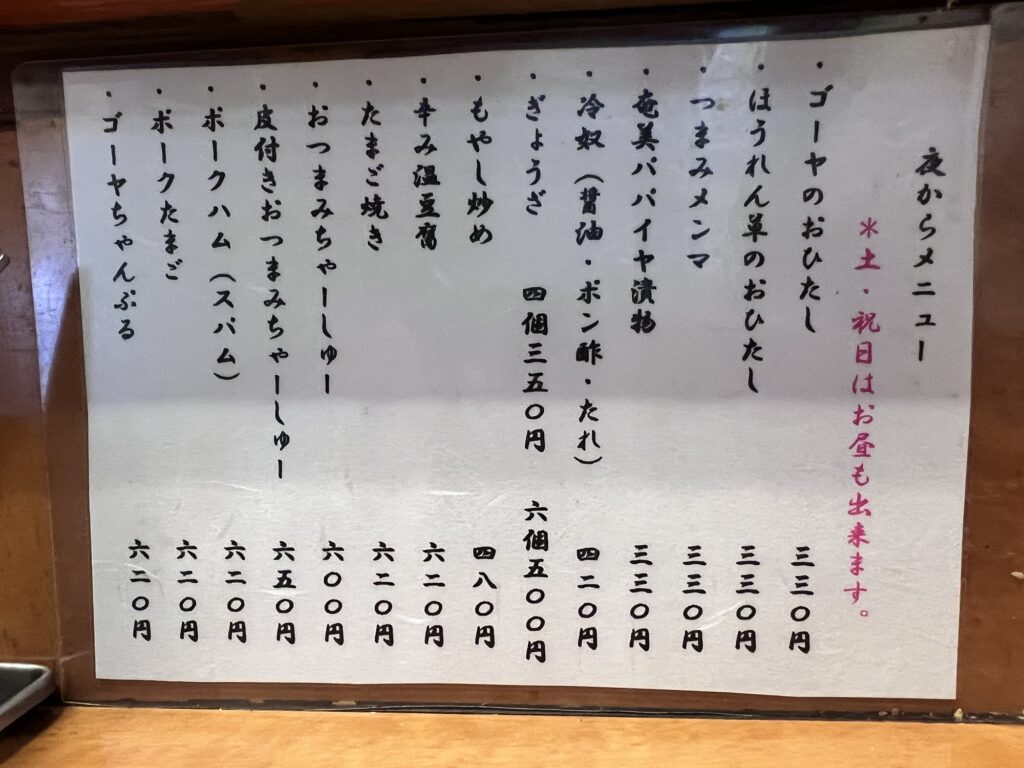 夜からメニュー
＊土・祝日はお昼も出来ます。
・ゴーヤのおひたし 三三〇円
・ほうれん草のおひたし 三三〇円
・つまみメンマ 三三〇円
・奄美パパイヤ漬物 三三〇円
・冷奴（醤油・ポン酢・たれ） 四二〇円
・ぎょうざ 四個三五〇円 六個五〇〇円
・もやし炒め 四八〇円
・辛み温豆腐 六二〇円
・たまご焼き 六二〇円
・おつまみちゃーしゅー 六〇〇円
・皮付きおつまみちゃーしゅー 六五〇円
・ポークハム（スパム） 六二〇円
・ポークたまご 六二〇円
・ゴーヤちゃんぷる 六二〇円